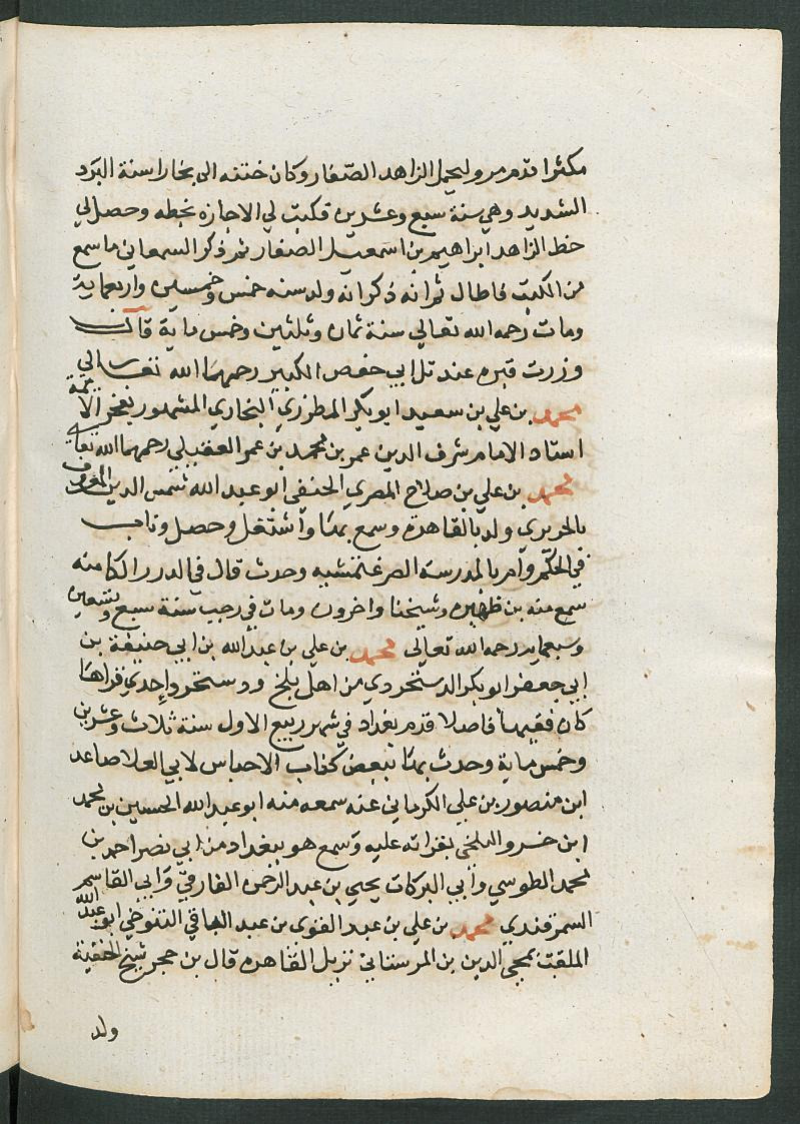 مكثرا قدم مرو ليحمل الزاهد الصفار وكان ختنه الى بخارا سنة البرد
الشديد وهي سنة سبع وعشرين فكتب لي الاجازه بخطه وحصل لي
خط الزاهد ابراهيم بن اسمعيل الصفار ثم ذكر السمعاني ما سمع
من الكتب فاطال ثم انه ذكر انه ولد سنه خمس وخمسين واربعماية
ومات رحمه الله تعالي سنة ثمان وثلثين وخمس ماية قال
وزرت قبره عند تل ابي حفص الكبير رحمهما الله تعالي
محمد بن علي بن سعيد ابو بكر المطرزي البخاري المشهور بفخر الائمة
استاد الامام شرف الدين عمر بن محمد بن عمر العقيلي رحمهما الله تعالي
محمد بن علي بن صلاح المصري الحنفي ابو عبد الله شمس الدين المعروف
بالحريري ولد بالقاهرة وسمع بها واشتغل وحصل وناب
في الحكم وامر بالمدرسة الصرغتمشيه وحدث قال في الدرر الكامنه
سمع منه بن ظهيره وشيخنا واخرون ومات في رجب سنة سبع وتسعين
وسبعمايه رحمه الله تعالى محمد بن علي بن عبد الله بن ابي حنيفة بن
ابي جعفر ابو بكر الدستجردي من اهل بلخ ودستجرد احدي قراها
كان فقيها فاضلا قدم بغداد في شهر ربيع الاول سنة ثلاث وعشرين
وخمس ماية وحدث بها ببعض كتاب الاحباس لابي العلا صاعد
ابن منصور بن علي الكرماني عنه سمعه منه ابو عبد الله الحسين بن محمد
ابن خسرو البلخي بقراته عليه وسمع هو ببغداد من ابي نصر احمد بن
محمد الطوسي وابي البركات يحيى بن عبد الرحمن الفارقي وابي القاسم
السمرقندي محمد بن علي بن عبد القوي بن عبد الباقي التنوخي ابو عبد الله
الملقب بمحي الدين بن المرستاني نزيل القاهره قال بن حجر شيخ الحنفية
ولد